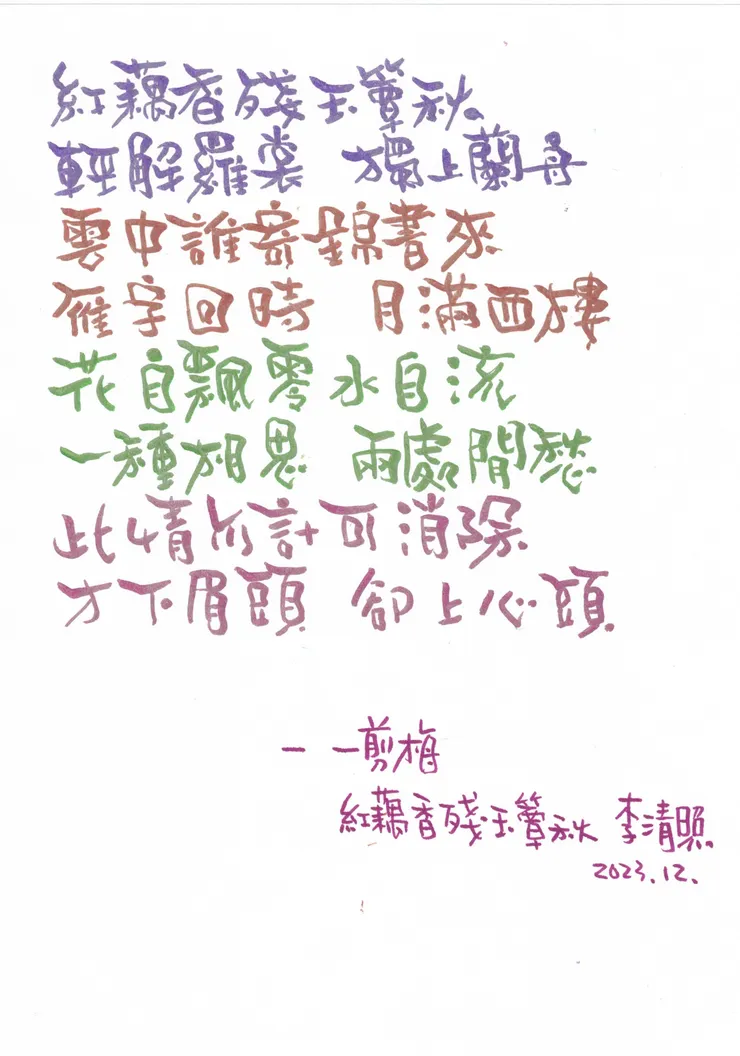 紅藕香殘玉簟秋
輕解羅裳 獨上蘭舟
雲中誰寄錦書來
雁字回時 月滿西樓
花自飄零水自流
一種相思 兩處閒愁
此情所計可消除
才下眉頭 卻上心頭
一 一剪梅
紅藕香殘玉簟秋 李清照
2023.12.